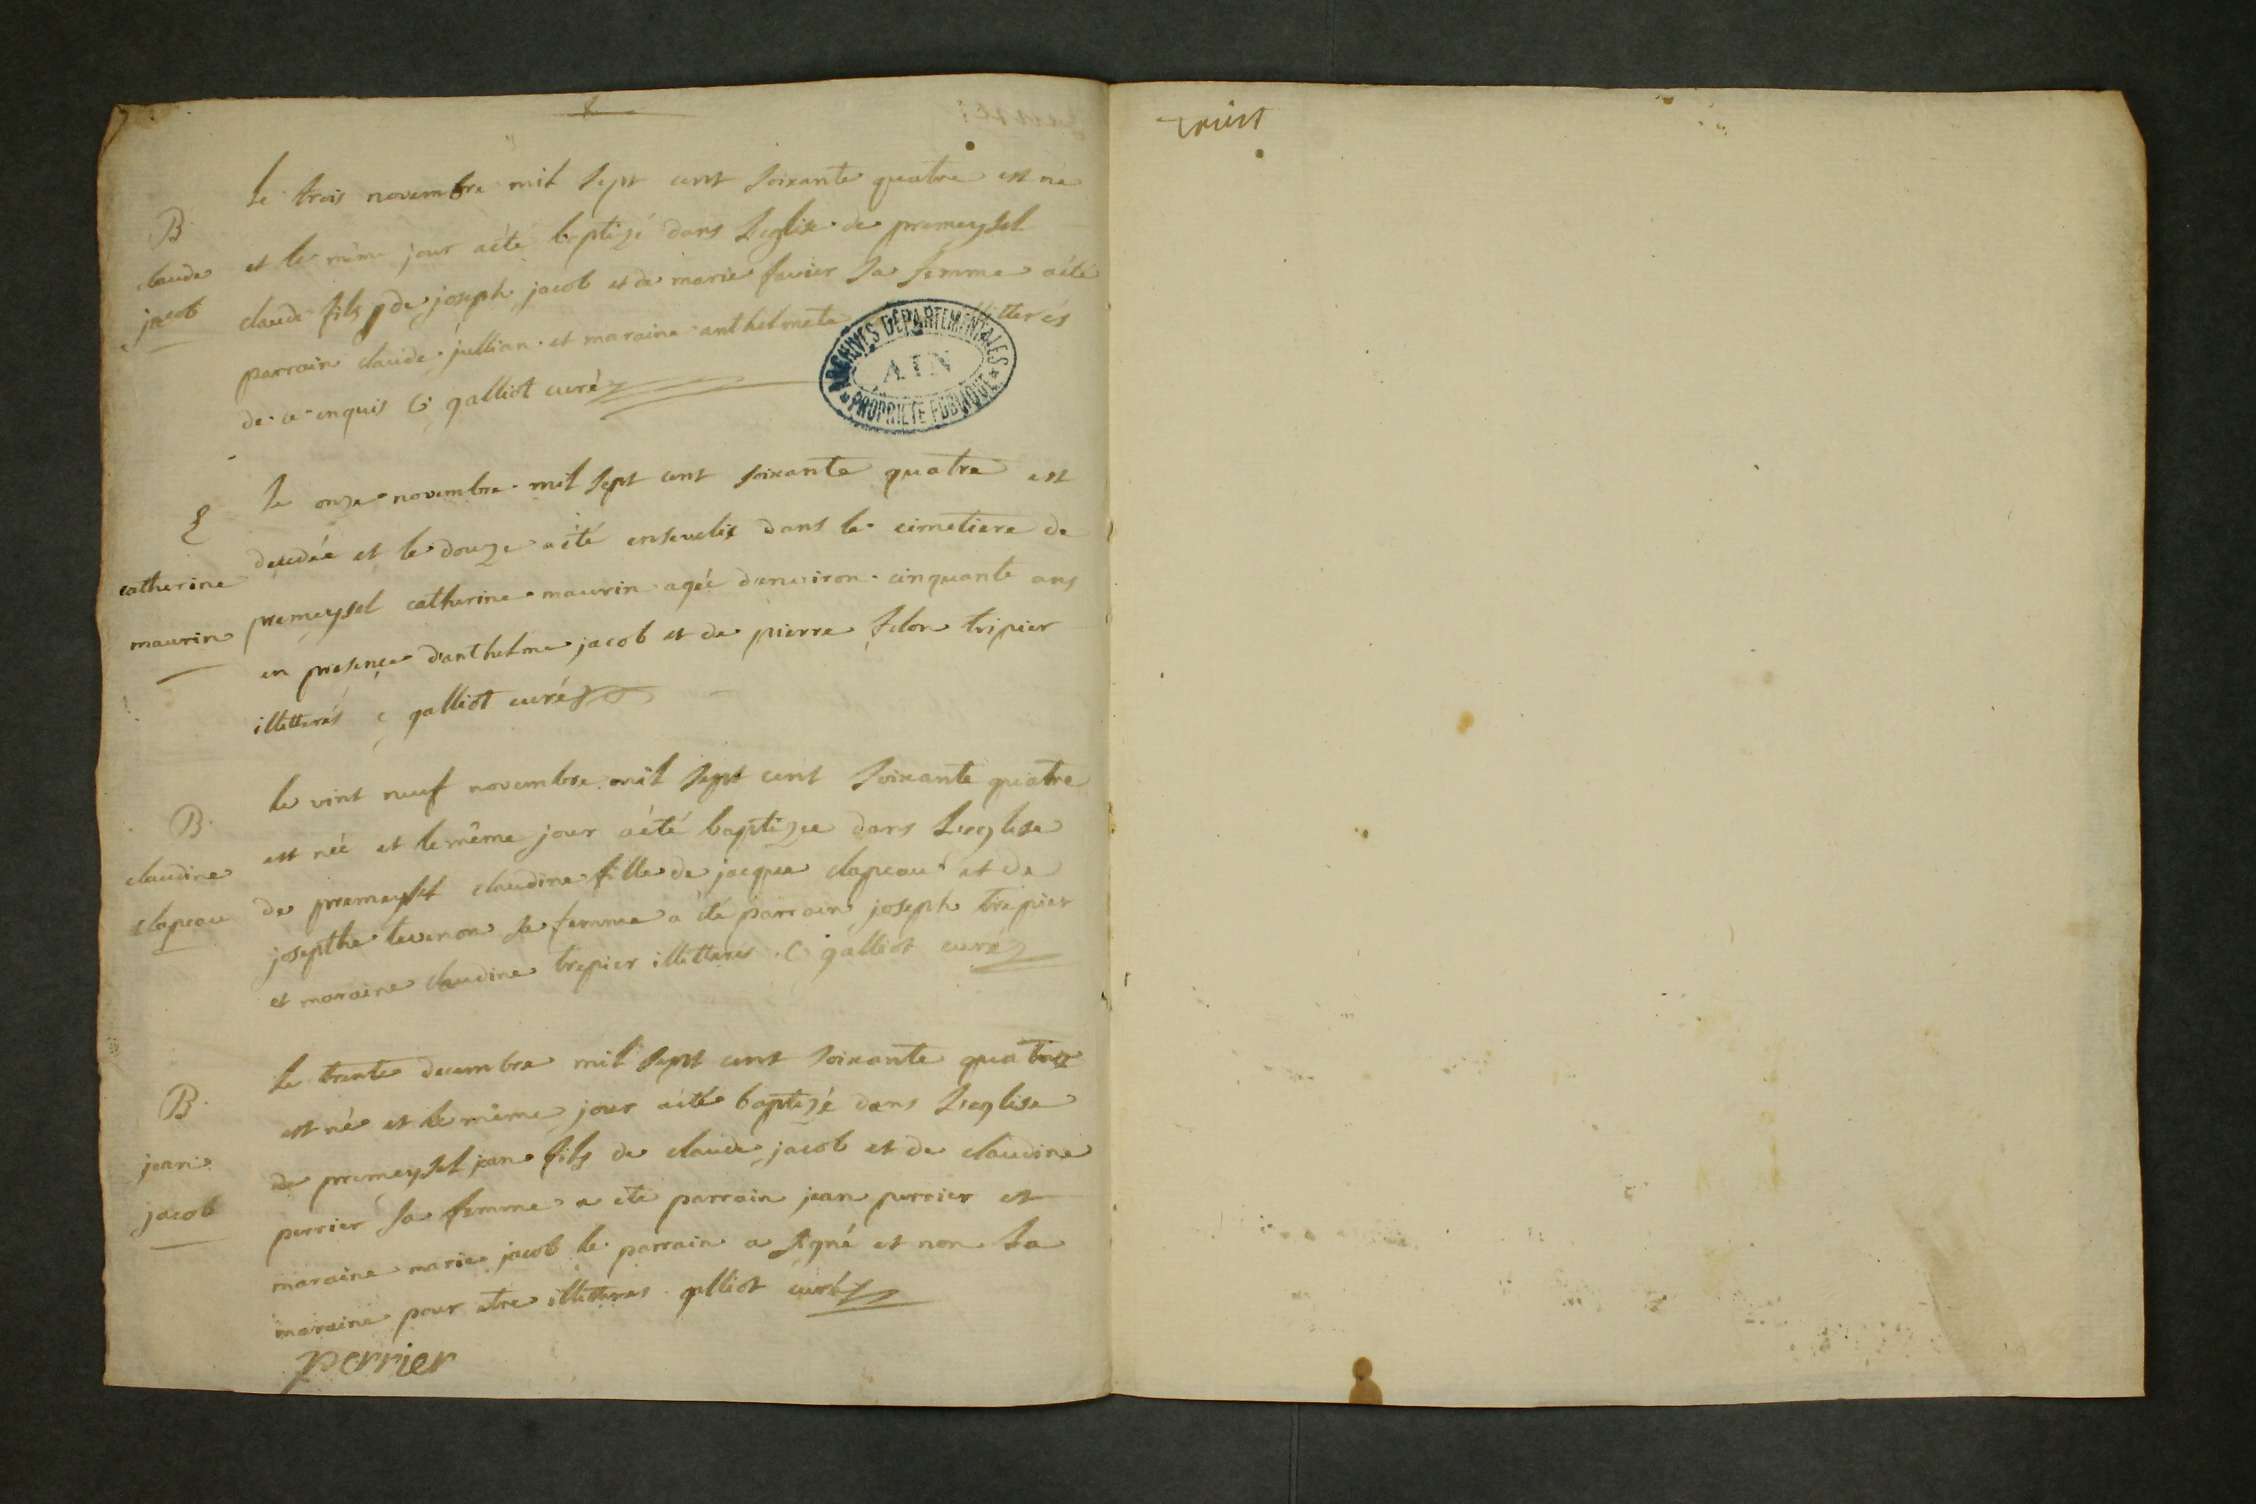 B.
claude
jacob
le trois novembre mil sept cent soixante quatre est né
et le même jour aété baptizé dans Leglise de premeysel
claude fils de joseph jacob et de marie favier sa femme aété
parrain claude jullian et maraine anthelmete illitterés
de ce enquis C galliot curé
ARCHIVES DÉPARTEMENTALES
AIN
PROPRIÉTÉ PUBLIQUE
catherine
maurin
le onze novembre mil sept cent soixante quatre est
decedée et le douze aété ensevelie dans le cimetiere de
premeysel catherine maurin agée denviron cinquante ans
en presence danthelme jacob et de pierre tripier
illitterés c galliot curé
B.
claudine
clapeau
le vint neuf novembre mil sept cent soixante quatre
est née et le même jour aété baptizee dans Leeglise
de premeysel claudine fille de jacque clapeau et de
josepthe tevenon sa femme a été parrain joseph trepier
et maraine claudine trepier illitteres C galliot curé
B.
jean
jacob
le trente decembre mil sept cent soixante quatre
est né et le même jour aété baptizé dans Leeglise
de premeysel jean fils de claude jacob et de claudine
perrier sa femme a eté parrain jean perrier et
maraine marie jacob le parrain a signé et non La
maraine pour etre illitteres galliot curé
perrier